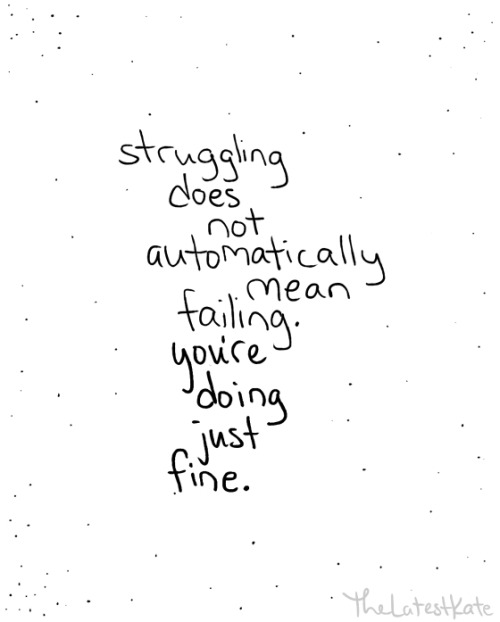 struggling
does
not
automatically
mean
failing.
you're
doing
just
fine.
TheLatestKate